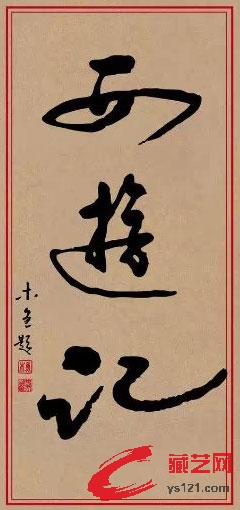 西遊记
木生题
藏艺网
ys121.com